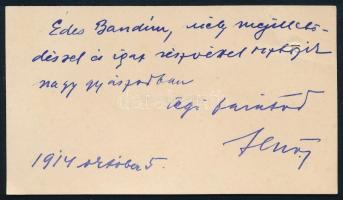 Édes Bandim, mély megillető-
déssel és igaz részvéttel osztozik
nagy gyászodban
régi barátod
Jenő
1914 október 5.